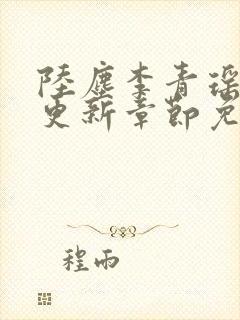 陸塵李青瑶
更新章節免
程雨